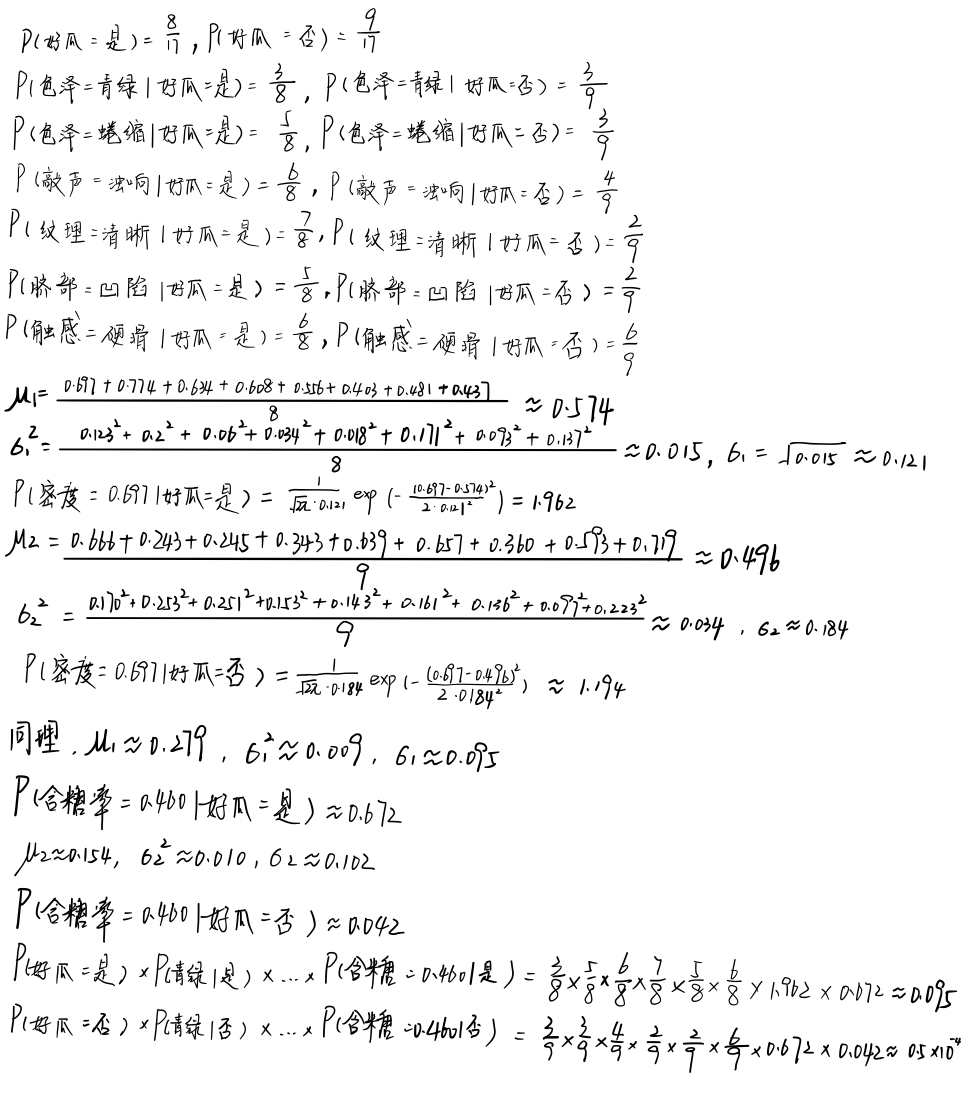 P(好瓜=是)=8/17, P(好瓜=否)=9/17
P(色泽=青绿|好瓜=是)=3/8, P(色泽=青绿|好瓜=否)=3/9
P(色泽=蜷缩|好瓜=是)=5/8, P(色泽=蜷缩|好瓜=否)=3/9
P(敲声=浊响|好瓜=是)=6/8, P(敲声=浊响|好瓜=否)=4/9
P(纹理=清晰|好瓜=是)=7/8, P(纹理=清晰|好瓜=否)=2/9
P(脐部=凹陷|好瓜=是)=5/8, P(脐部=凹陷|好瓜=否)=2/9
P(触感=硬滑|好瓜=是)=6/8, P(触感=硬滑|好瓜=否)=6/9
μ1=(0.697+0.774+0.634+0.608+0.556+0.403+0.481+0.437)/8≈0.574
σ1²=(0.123²+0.2²+0.06²+0.034²+0.018²+0.171²+0.093²+0.137²)/8≈0.015, σ1=√0.015≈0.121
P(密度=0.697|好瓜=是)=1/(√2π·0.121) exp(-(0.697-0.574)²/(2·0.121²))=1.962
μ2=(0.666+0.243+0.245+0.343+0.639+0.657+0.360+0.593+0.719)/9≈0.496
σ2²=(0.170²+0.253²+0.251²+0.153²+0.143²+0.161²+0.136²+0.097²+0.223²)/9≈0.034, σ2≈0.184
P(密度=0.697|好瓜=否)=1/(√2π·0.184) exp(-(0.697-0.496)²/(2·0.184²))≈1.194
同理, μ1≈0.279, σ1²≈0.009, σ1≈0.095
P(含糖率=0.460|好瓜=是)≈0.672
μ2≈0.154, σ2²≈0.010, σ2≈0.102
P(含糖率=0.460|好瓜=否)≈0.042
P(好瓜=是)×P(青绿|是)×...×P(含糖=0.460|是)=3/8×5/8×6/8×7/8×5/8×6/8×1.962×0.672≈0.095
P(好瓜=否)×P(青绿|否)×...×P(含糖=0.460|否)=3/9×3/9×4/9×2/9×2/9×6/9×0.672×0.042≈0.5×10⁻⁴